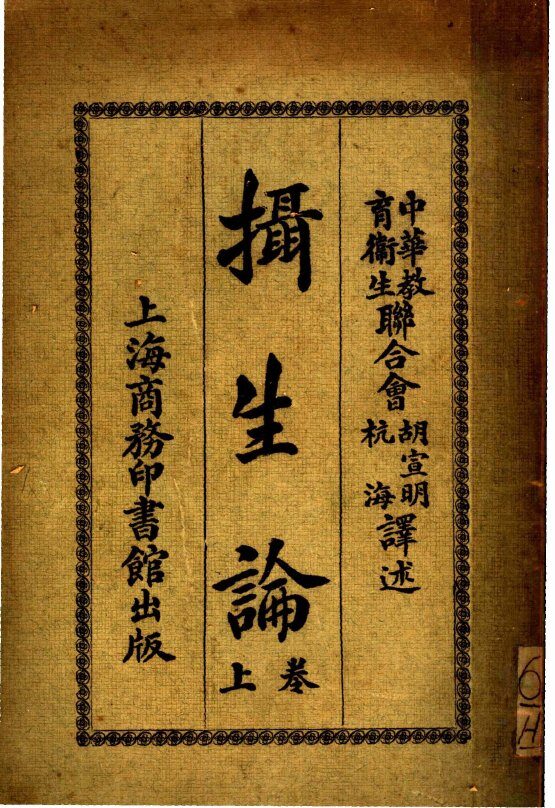 中華教育衛生聯合會 胡宣明 杭海 譯述
攝生論
卷上
上海商務印書館出版
6
H